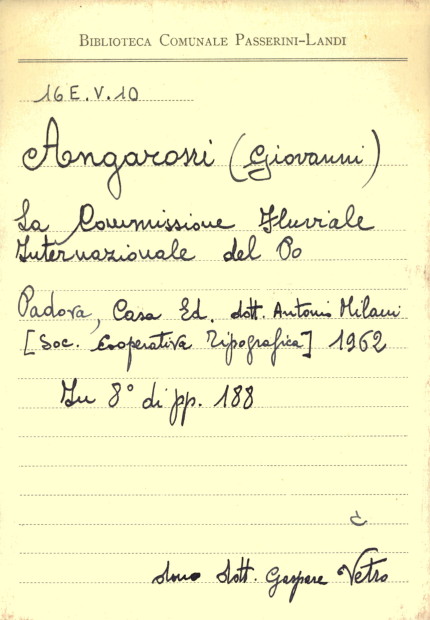 BIBLIOTECA COMUNALE PASSERINI-LANDI
16 E. V. 10
Angarossi (Giovanni)
La Commissione Fluviale
Internazionale del Po
Padova, Casa Ed. dott. Antonio Milani
[Soc. Cooperativa Tipografica] 1962
In 8° di pp. 188
c
dono dott. Gaspare Vetro